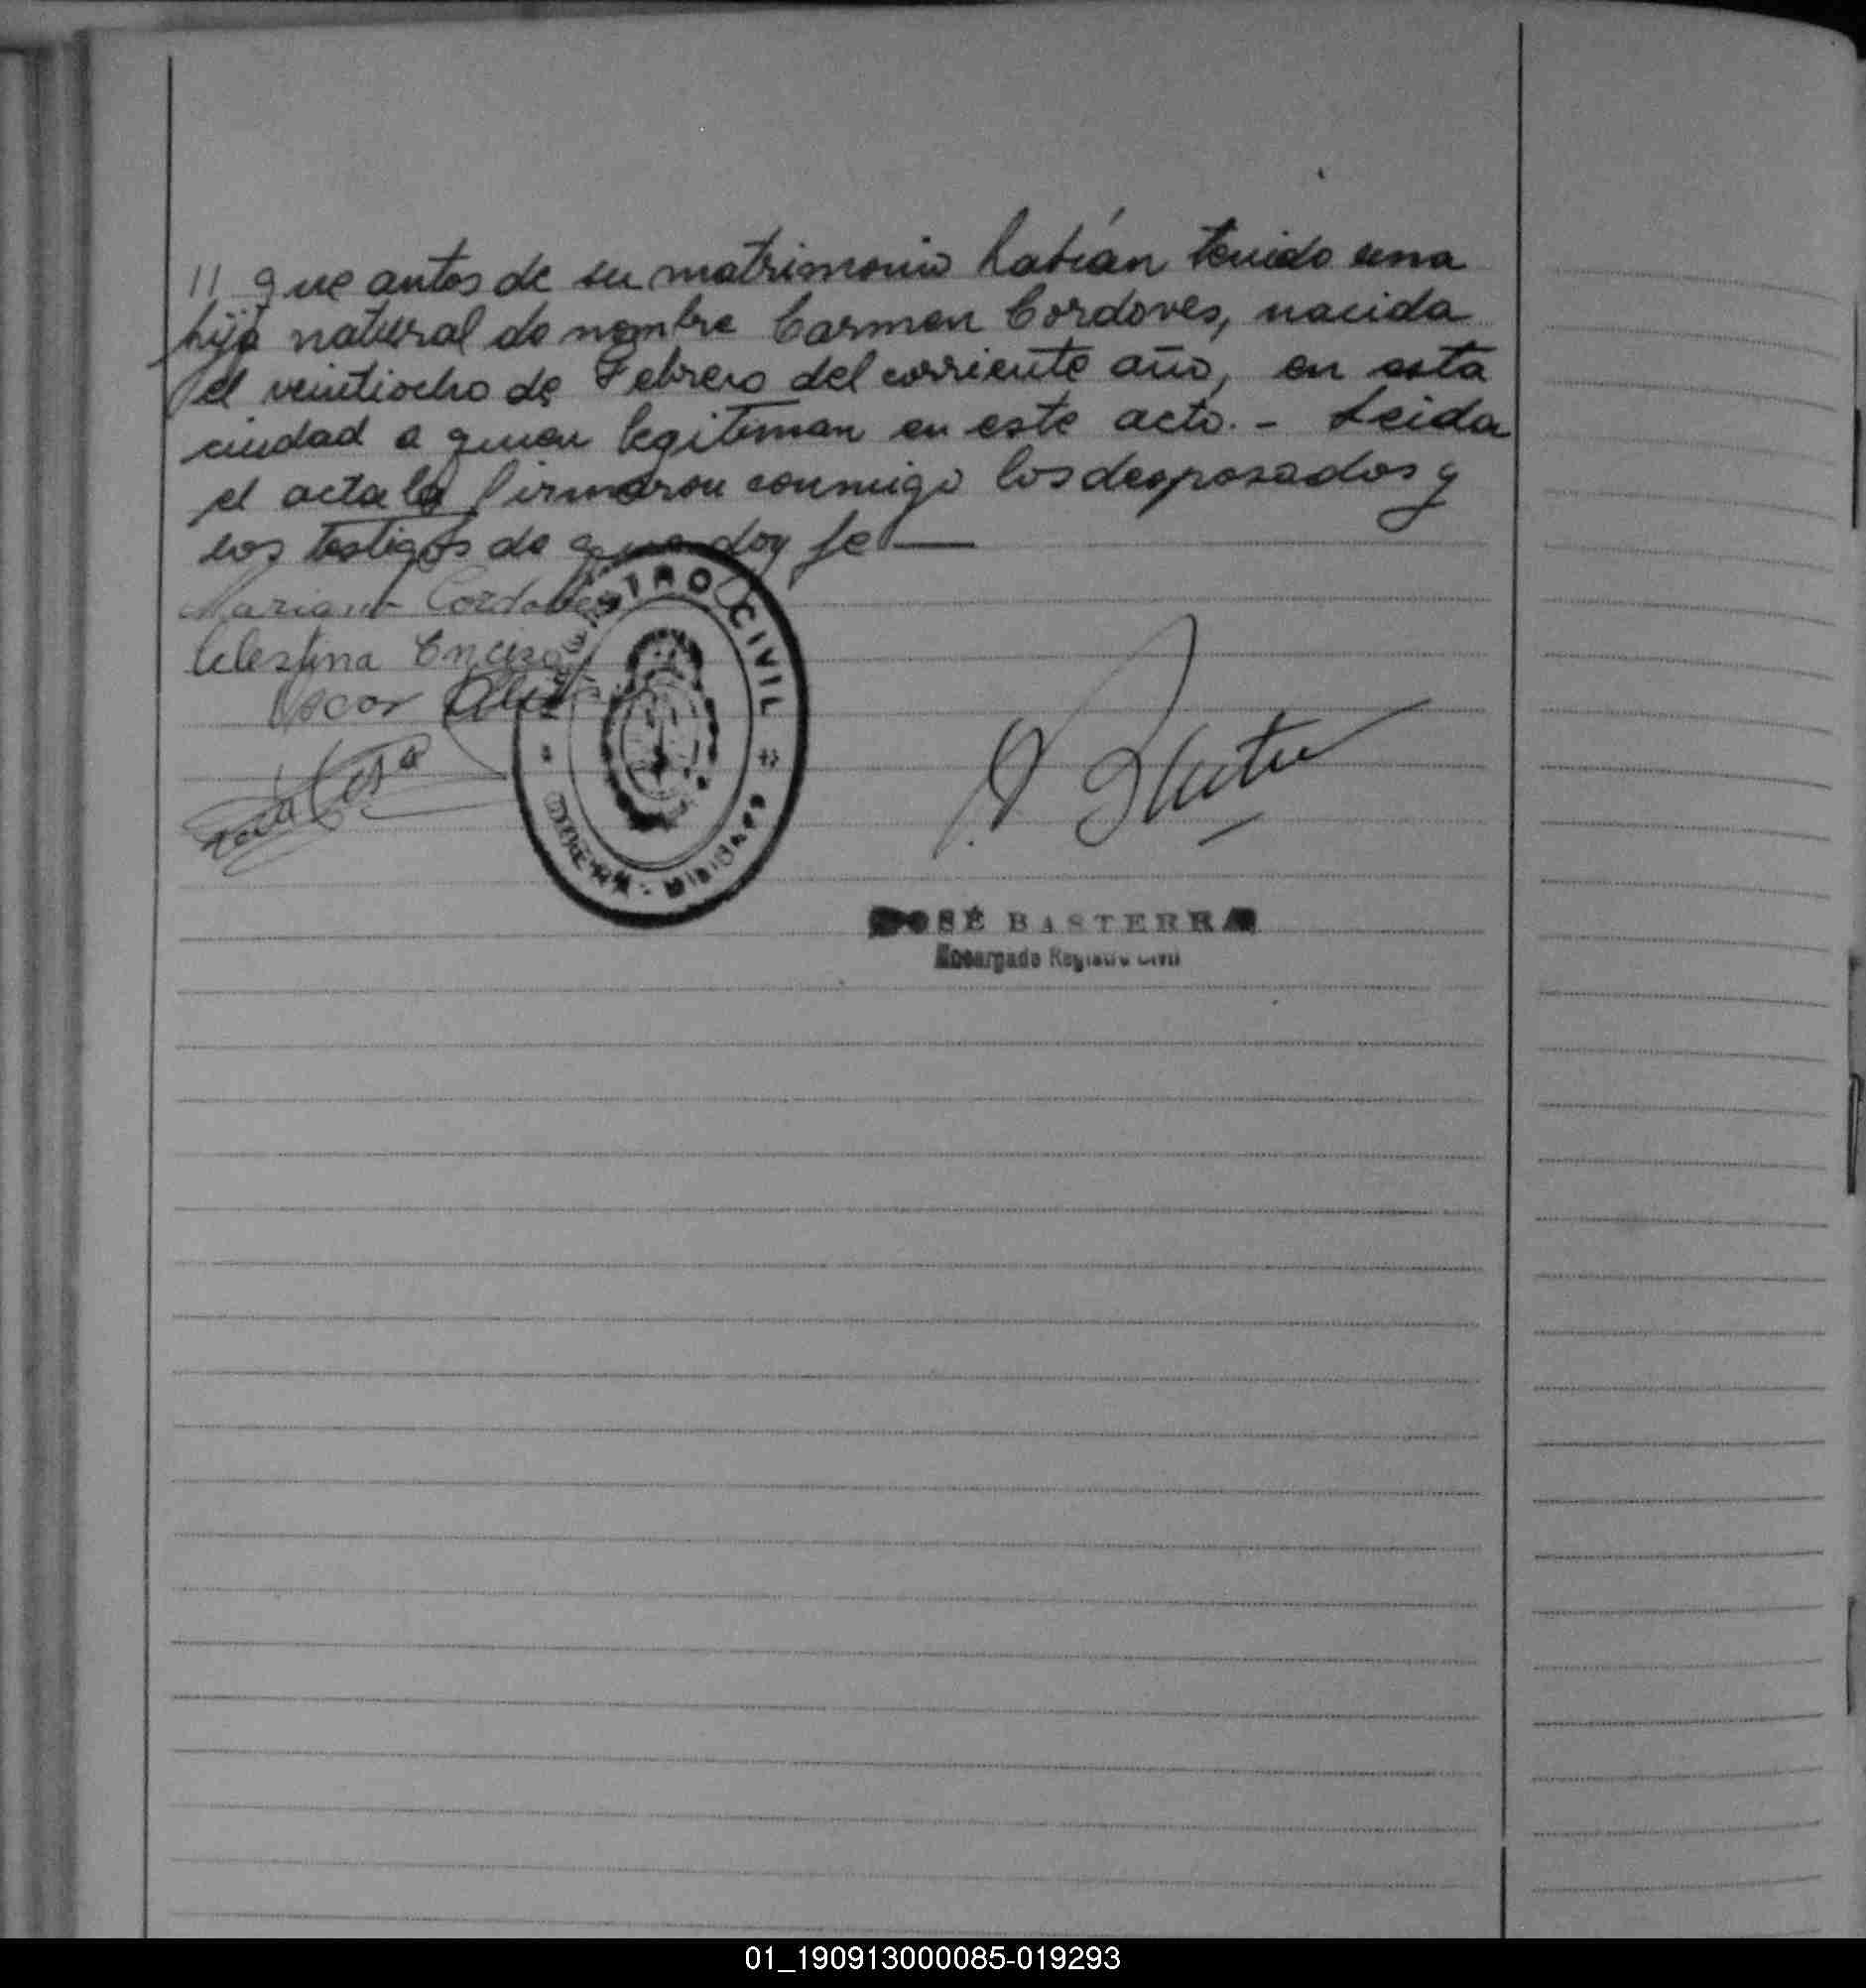 // que antes de su matrimonio habían tenido una
hija natural de nombre Carmen Cordoves, nacida
el veintiocho de Febrero del corriente año, en esta
ciudad a quien legitiman en este acto. - Leida
el acta la firmaron conmigo los desposados y
los testigos de que doy fe —
Mariano Cordoves
Celestina Enciso
Oscar
REGISTRO CIVIL
JOSÉ BASTERRA
Encargado Registro Civil
01_190913000085-019293